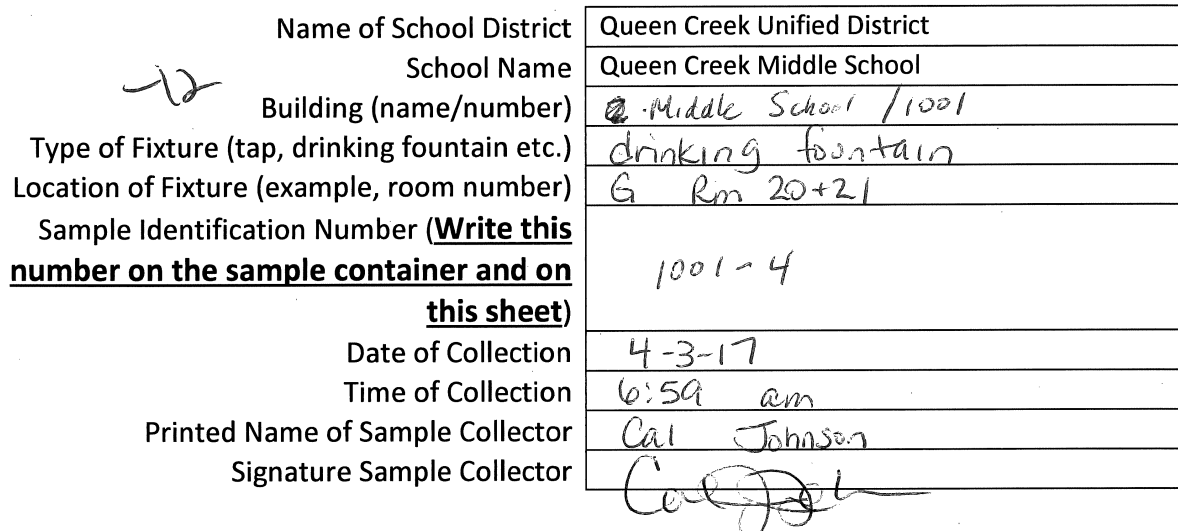 Name of School District Queen Creek Unified District
School Name Queen Creek Middle School
-12
Building (name/number) Middle School /1001
Type of Fixture (tap, drinking fountain etc.) drinking fountain
Location of Fixture (example, room number) G Rm 20+21
Sample Identification Number (Write this
number on the sample container and on
this sheet)
1001-4
Date of Collection 4-3-17
Time of Collection 6:59 am
Printed Name of Sample Collector Cal Johnson
Signature Sample Collector